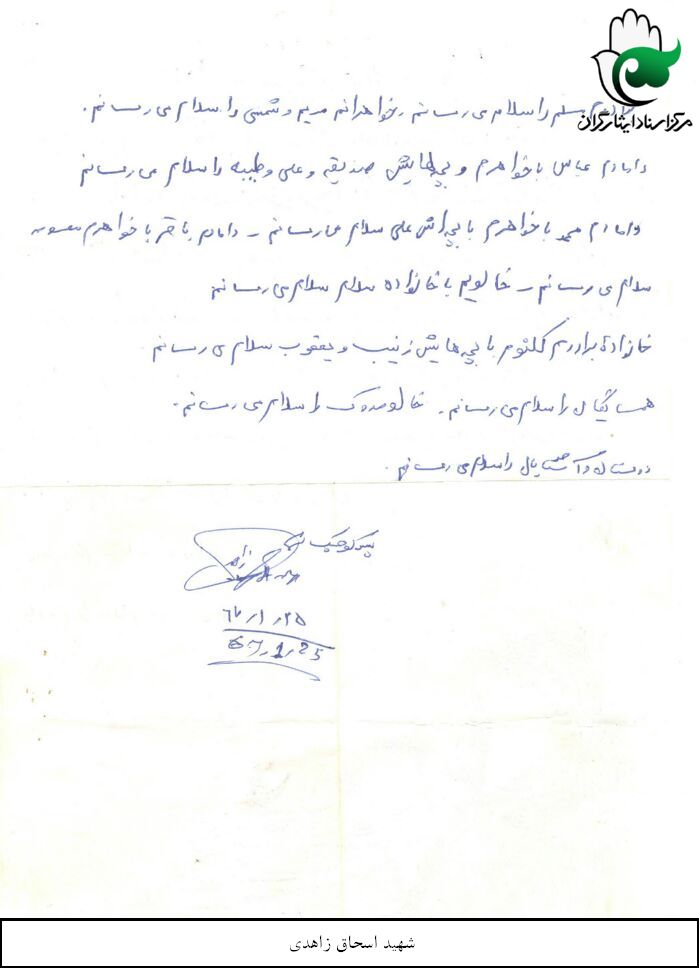 مرکز اسناد ایثارگران
مسلم را سلام می رسانم. خواهرانم مریم و شمسی را سلام می رسانم.
دامادم عباس با خواهرم و بچه هایش صدیقه و علی و طیبه را سلام می رسانم
دامادم محمد با خواهرم با بچه اش علی سلام می رسانم – دامادم باقر با خواهرم معصومه
سلام می رسانم – خالویم با خانواده سلام سلام می رسانم
خانواده برادرم کلثوم با بچه هایش زینب و یعقوب سلام می رسانم
همسایگان را سلام می رسانم. خالو مبارک را سلام می رسانم.
دوستان و آشنایان را سلام می رسانم.
پسر کوچک
۶۷/۱/۲۵
67/1/25
شهید اسحاق زاهدی